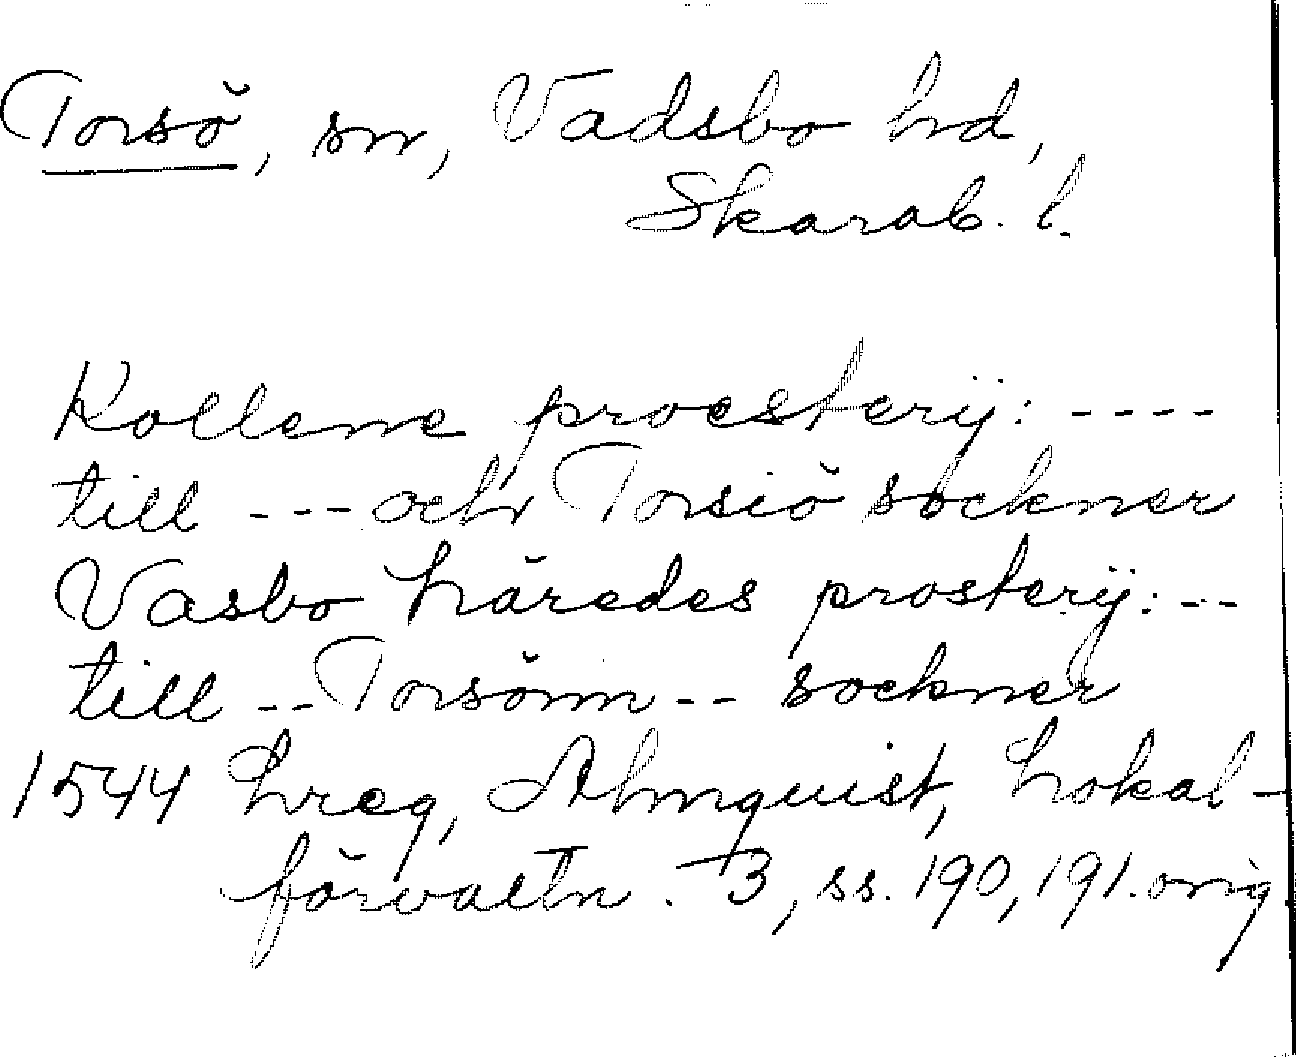 Torsö, sn, Vadsbo hd,
Skarab. l.
Kollene proesterij: ----
till --- och Torsiö sockner
Vasbo häredes prosterij: --
till -- Torsönn -- sockner
1544 Lreg, Almquist, Lokal-
förvaltn. 3, ss. 190, 191. orig.